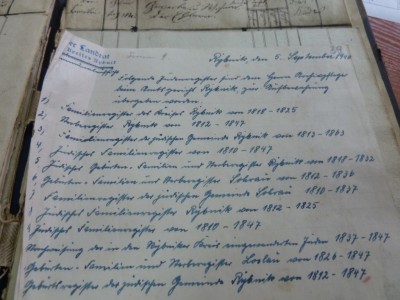 er Landrat
Rybnik, den 5. September 1940
Folgende Judenregister sind dem Herrn Archivpfleger
beim Amtsgericht Rybnik zur Aufbewahrung
übergeben worden.
1) Familienregister des Kreises Rybnik von 1818-1825
2) Sterberegister Rybnik von 1812-1847
3) Familienregister der jüdischen Gemeinde Rybnik von 1813-1863
4) Jüdisches Familienregister von 1810-1847
5, Jüdische Geburten- Familien und Sterberegister Rybnik von 1818-1832
6, Geburten- Familien und Sterberegister Loslau von 1812-1836
Familienregister der jüdischen Gemeinde Loslau 1810-1837
Jüdisches Familienregister Rybnik von 1812-1825
Familienregister von 1810-1847
Nachweisung der in den Rybniker Kreis eingewanderten Juden 1837-1847
Geburten- Familien und Sterberegister Loslau von 1826-1847
Geburtsregister der jüdischen Gemeinde Rybnik von 1812-1847